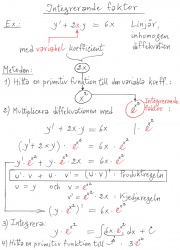 Integrerande faktor
Ex.: y' + 2x·y = 6x Linjär, inhomogen diffekvation
med variabel koefficient
2x
Metoden:
1) Hitta en primitiv funktion till den variabla koeff.:
x²
2) Multiplicera diffekvationen med e^(x²) Integrerande faktor
y' + 2x·y = 6x | · e^(x²)
(y' + 2x·y)·e^(x²) = 6x·e^(x²)
y'·e^(x²) + y·e^(x²)·2x = 6x·e^(x²)
u'·v + u·v' = (u·v)' Produktregeln
u = y och v = e^(x²)
v' = e^(x²)·2x Kjedjeregeln
(y·e^(x²))' = 6x·e^(x²)
3) Integrera
y·e^(x²) = ∫6x·e^(x²) dx + C
4) Hitta en primitiv funktion till